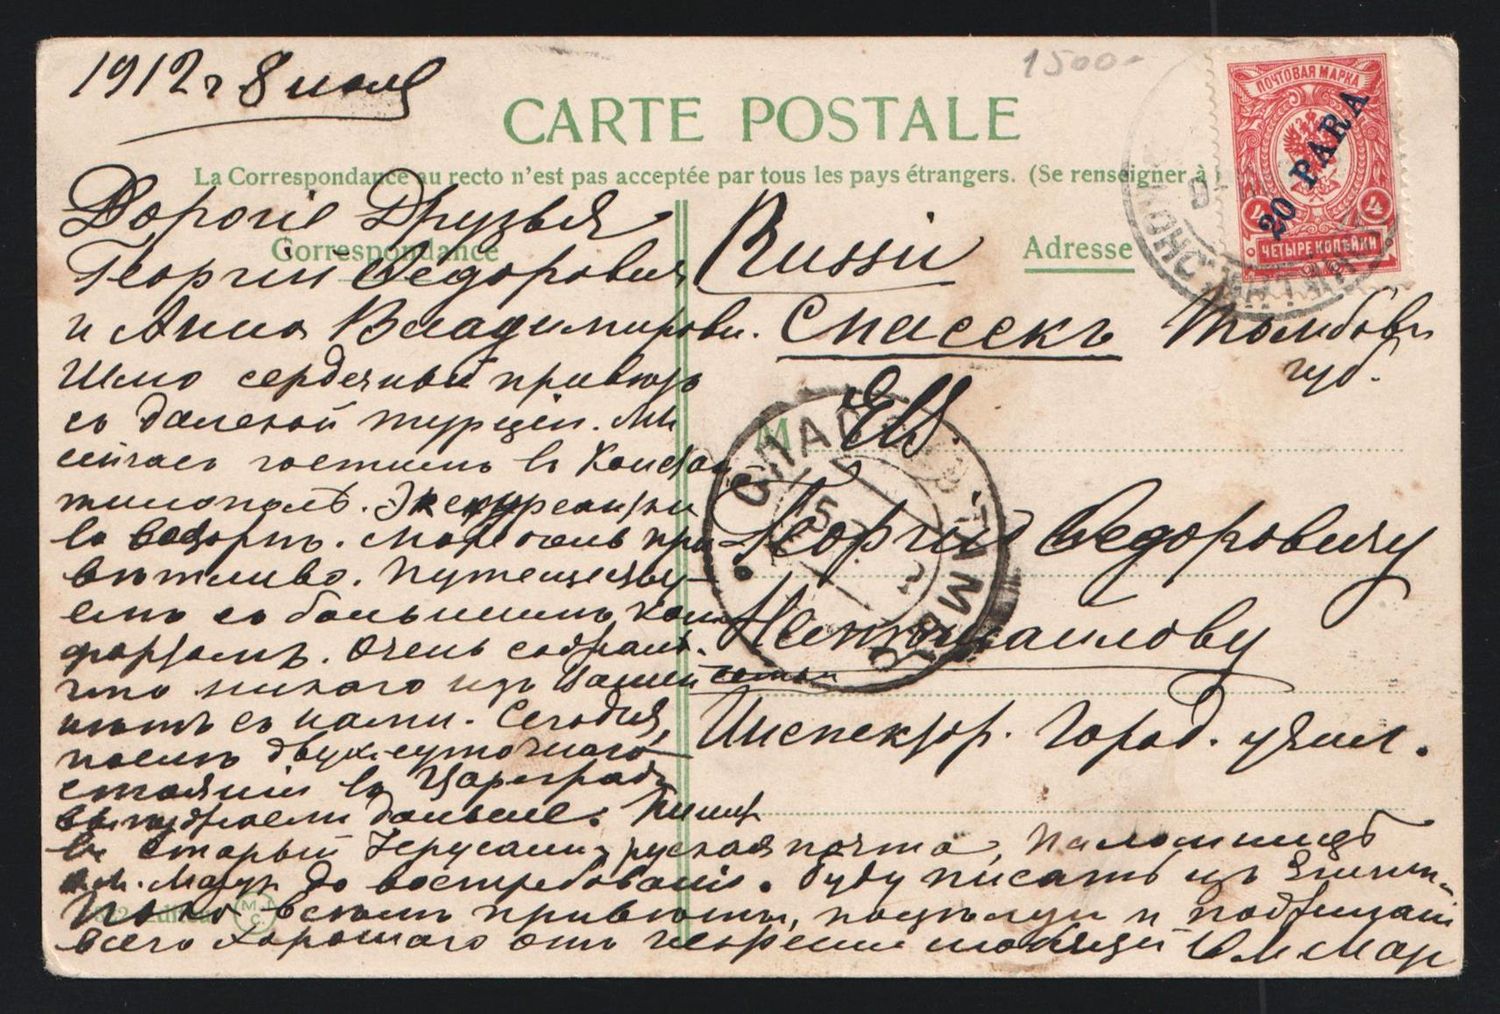 1912 г 8 июля
1500-
CARTE POSTALE
La Correspondance au recto n'est pas acceptée par tous les pays étrangers. (Se renseigner à
Correspondance
Adresse
ПОЧТОВАЯ МАРКА
20 PARA
4 4
ЧЕТЫРЕ КОПѢЙКИ
КОНСТАНТИНОП
Дорогіе Друзья
Георгій Ѳедоровичъ
и Анна Владимировн.
Шлю сердечный привѣтъ
съ далекой турціи. Мы
сейчасъ гостимъ въ Констан
тинополѣ. Экскурсанты
въ восторгѣ. Море очень при
вѣтливо. Путешеству-
емъ съ большимъ ком
фортомъ. Очень
что никого изъ Вашей семьи
нѣтъ съ нами. Сегодня,
послѣ двухсуточнаго
стоянія въ Царьградѣ
дальше. Пишите
въ старый Іерусалимъ, русская почта, паломницѣ
М. до востребованія. Буду писать изъ Египта
Пока всѣмъ привѣты, поцѣлуи и
всего хорошаго отъ искренно любящей М Мар
Russie
Спасскъ Тамбовск
губ.
M
ЕВ.
Георгію Ѳедоровичу
Инспектор. Город. учил.
СПАССКЪ ТАМБОВ
15
Edition
M T C